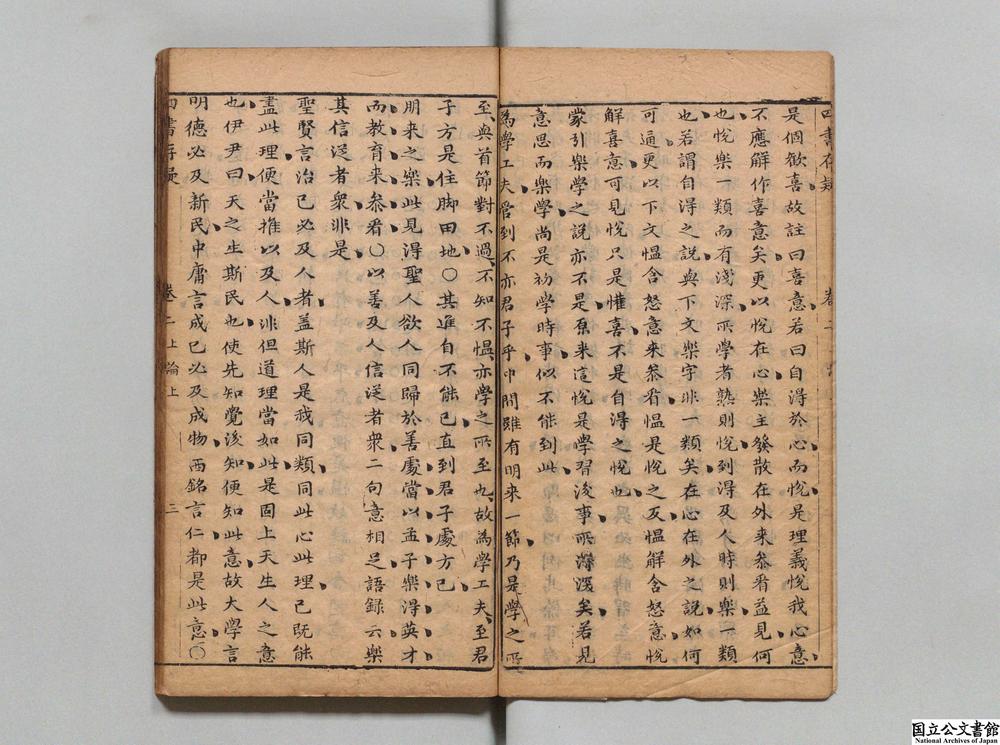 四書存疑
卷二
是個歡喜故註曰喜意若曰自得於心而悅是理義悅我心意
不應解作喜意矣更以悅在心樂主發散在外來叅看益見何
也悅樂一類而有淺深所學者熟則悅到得及人時則樂一類
也若謂自得之說與下文樂字非一類矣在心在外之說如何
可通更以下文慍含怒意來叅看慍是悅之反慍解含怒意悅
解喜意可見悅只是懽喜不是自得之悅也
蒙引樂學之說亦不是原來這悅是學習後事所得深矣若見
意思而樂學尚是初學時事似不能到此
為學工夫管到不亦君子乎中間雖有朋來一節乃是學之所
至與首節對不過不知不慍亦學之所至也故為學工夫至君
子方是住脚田地〇其進自不能已直到君子處方已
朋來之樂此見得聖人欲人同歸於善處當以孟子樂得英才
而教育來叅看〇以善及人信從者衆二句意相足語錄云樂
其信從者衆非是
聖賢言治己必及人者盖斯人是我同類同此心此理己既能
盡此理便當推以及人非但道理當如此是固上天生人之意
也伊尹曰天之生斯民也使先知覺後知便知此意故大學言
明德必及新民中庸言成己必及成物西銘言仁都是此意〇
四書存疑
卷二上論上
三
国立公文書館
National Archives of Japan